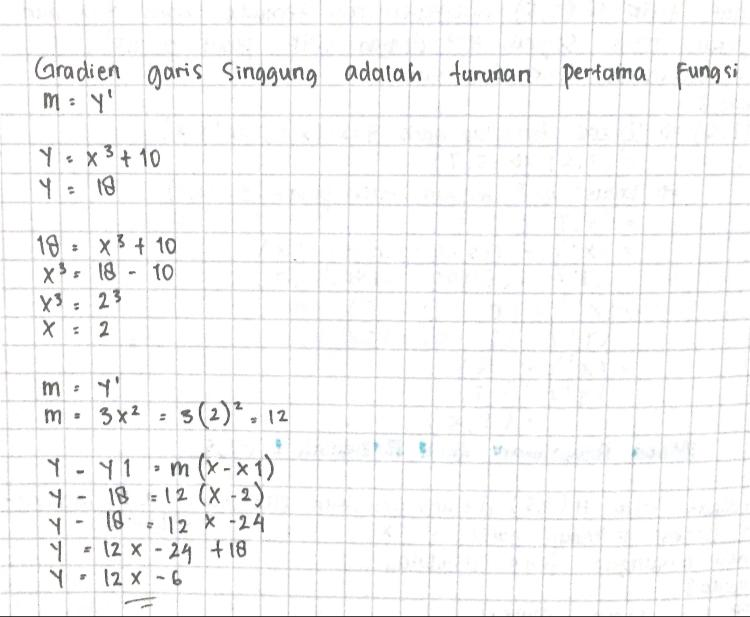 Gradien garis singgung adalah turunan pertama fungsi
m = y'
y = x³ + 10
y = 18
18 = x³ + 10
x³ = 18 - 10
x³ = 2³
x = 2
m = y'
m = 3x² = 3(2)² = 12
y - y1 = m(x - x1)
y - 18 = 12(x - 2)
y - 18 = 12x - 24
y = 12x - 24 + 18
y = 12x - 6